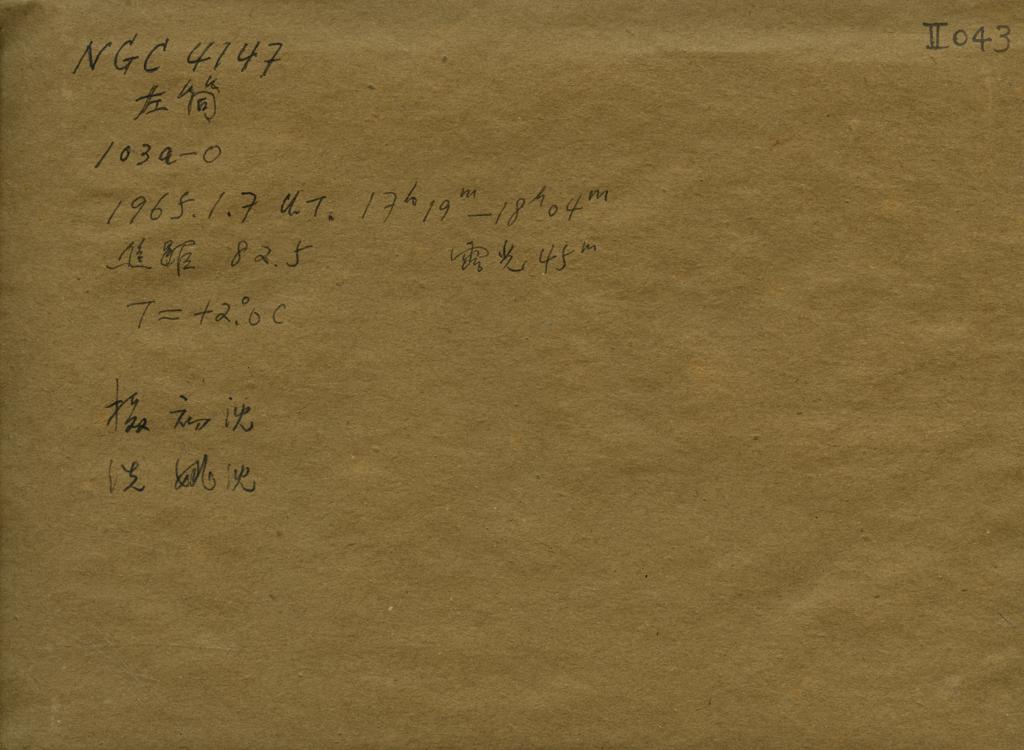 II043
NGC 4147
左筒
103a-O
1965.1.7 U.T. 17ʰ19ᵐ—18ʰ04ᵐ
焦距 82.5 露光 45ᵐ
T = +2.°0 C
摄 初 沈
洗 姚 沈